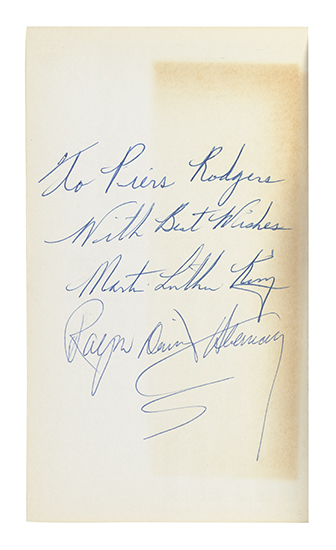 To Piers Rodgers
With Best Wishes
Martin Luther King
Ralph David Abernathy